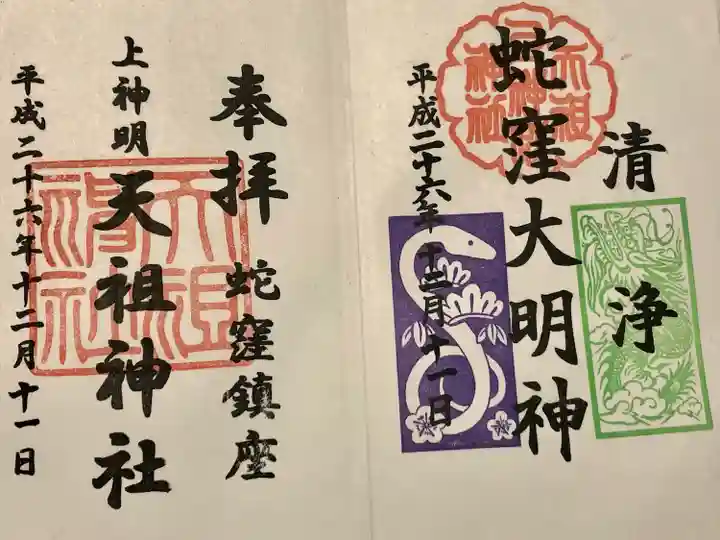 清浄
蛇窪大明神
平成二十六年十二月十一日
天祖神社
奉拝
蛇窪鎮座
上神明
天祖神社
平成二十六年十二月十一日